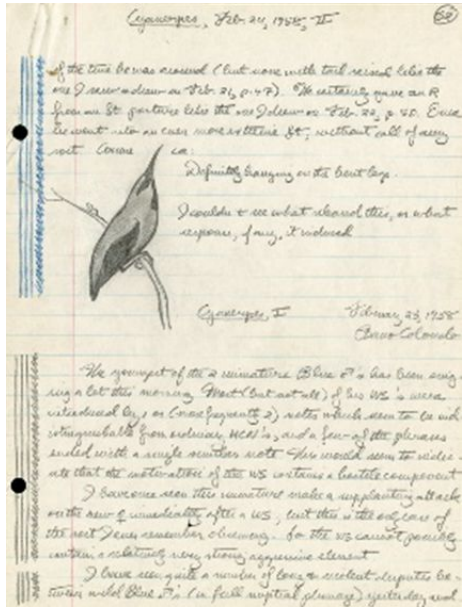 Cyanerpes, Feb. 24, 1958, II
52
of the time he was around (but none with tail raised like the
one I saw & drew on Feb. 21, p. 47). He certainly gave an R
from one St. posture like the one I drew on Feb. 22, p. 50. Once
he went into an even more extreme St, without call of any
sort.
Definitely hanging on the bent legs.
I couldn't see what released this, or what
response, if any, it induced
Cyanerpes, I February 25, 1958
Barro Colorado
The youngest of the 2 immature Blue ♂'s has been sing-
ing a lot this morning. Most (but not all) of his WS's were
introduced by 1 or (less frequently 2) notes which seem to be ind-
istinguishable from ordinary HCN's, and a few of the phrases
ended with a single similar note. This would seem to indic-
ate that the motivation of the WS contains a hostile component
I have once seen this immature make a supplanting attack
on the new ♀ immediately after a WS, but this is the only case of
the sort I can remember observing. So the WS cannot possibly
contain a relatively very strong aggressive element
I have seen quite a number of long & violent disputes be-
tween wild Blue ♂'s (in full nuptial plumage) yesterday and